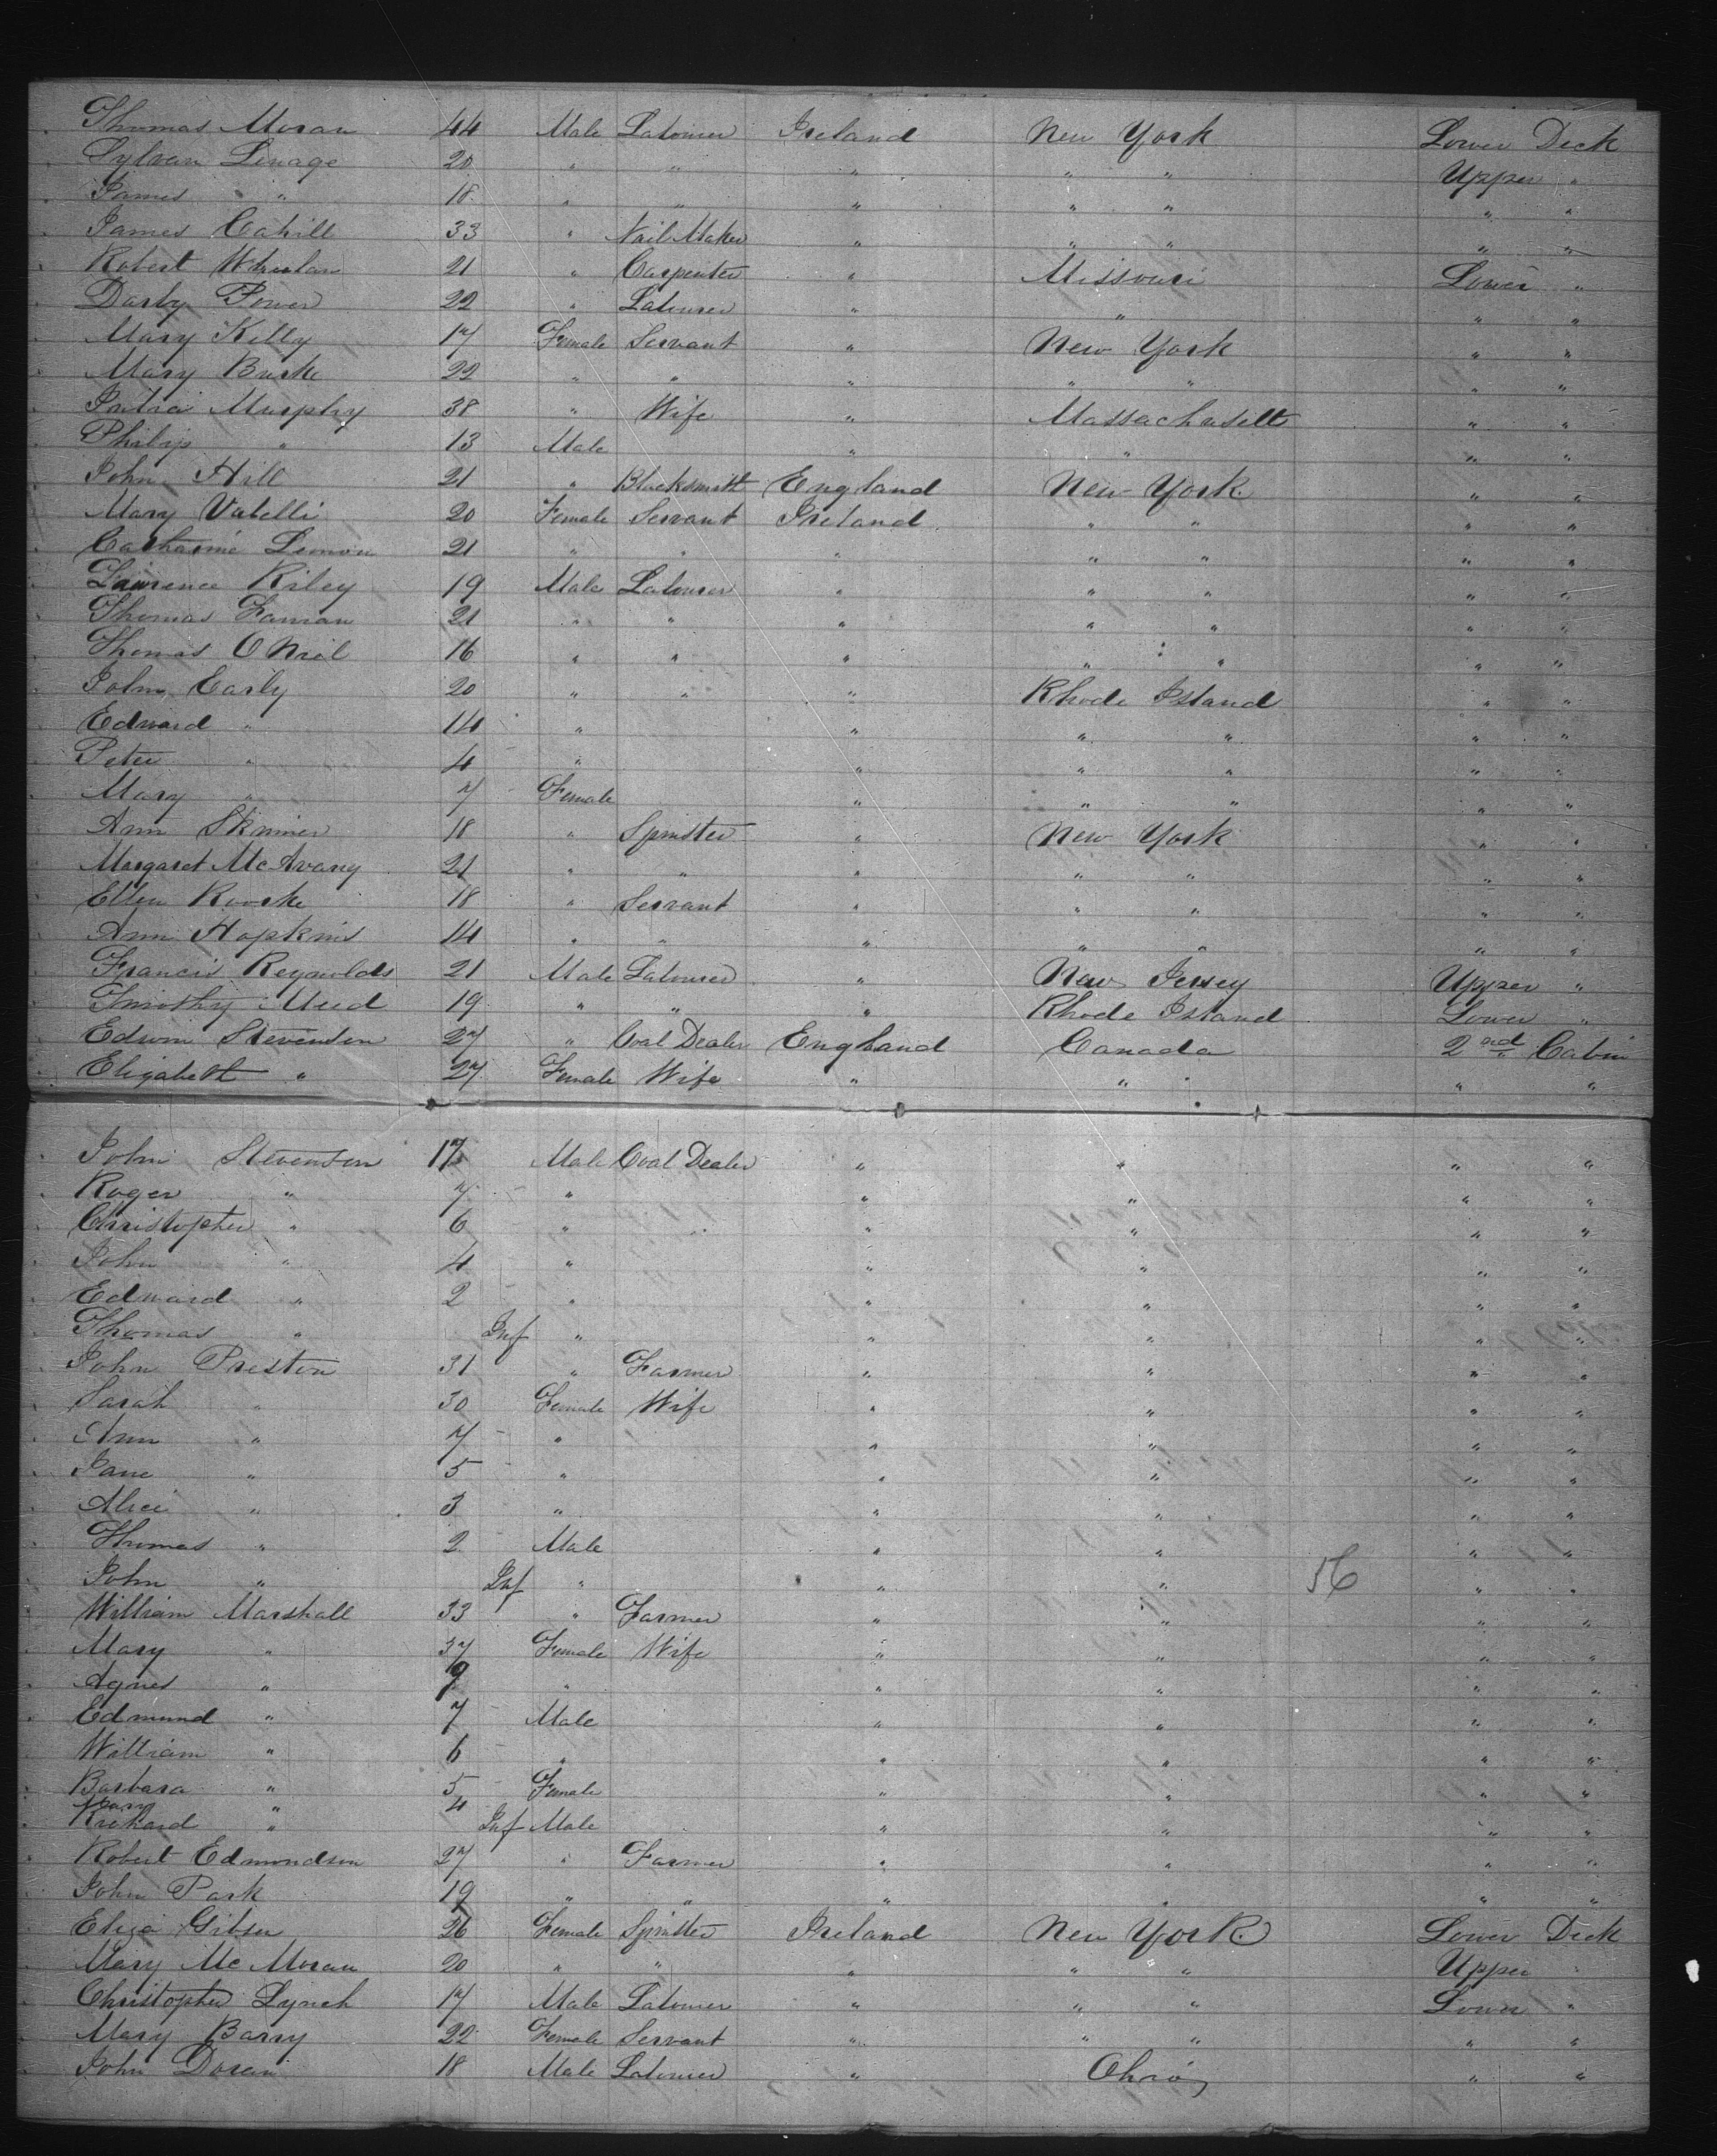 Thomas Moran 44 Male Labourer Ireland New York Lower Deck
Sylvan Linage 20 " " " " " Upper "
James " 18 " " " " " " "
James Cahill 33 " Nail Maker " " " " "
Robert Whulan 21 " Carpenter " Missouri Lower "
Darby Power 22 " Labourer " " " "
Mary Kelly 17 Female Servant " New York " "
Mary Burke 22 " " " " " " "
Murphy 38 " Wife " Massachusett " "
Philip " 13 Male " " " "
John Hill 21 " Blacksmith England New York " "
Mary Vatelli 20 Female Servant Ireland " " " "
Catharine Lemon 21 " " " " " " "
Lawrence Riley 19 Male Labourer " " " " "
Thomas Farnan 21 " " " " " " "
Thomas O Neil 16 " " " " " " "
John Early 20 " " " Rhode Island " "
Edward " 14 " " " " " "
Peter " 4 " " " " " "
Mary " 7 Female " " " " "
Ann Skinner 18 " Spinster " New York " "
Margaret McAvany 21 " " " " " " "
Ellen Roorke 18 " Servant " " " " "
Ann Hopkins 14 " " " " " " "
Francis Reynolds 21 Male Labourer " New Jersey Upper "
Timothy Mud 19 " " " Rhode Island Lower "
Edwin Stevenson 27 " Coal Dealer England Canada 2nd Cabin
Elizabeth " 27 Female Wife " " " "
John Stevenson 17 Male Coal Dealer " " " "
Roger " 7 " " " " "
Christopher " 6 " " " " "
John " 4 " " " " "
Edward " 2 " " " " "
Thomas " Inf " " " " "
John Preston 31 " Farmer " " " "
Sarah " 30 Female Wife " " " "
Ann " 7 " " " " "
Jane " 5 " " " " "
Alice " 3 " " " " "
Thomas " 2 Male " " " "
John " Inf " " " 56 " "
William Marshall 33 " Farmer " " " "
Mary " 37 Female Wife " " " "
Agnes " 9 " " " " "
Edmund " 7 Male " " " "
William " 6 " " " " "
Barbara " 5 Female " " " "
Mary " 4
Richard " Inf Male " " " "
Robert Edmondson 27 " Farmer " " " "
John Park 19 " " " " " "
Eliza Gibson 26 Female Spinster Ireland New York Lower Deck
Mary McMoran 20 " " " " " Upper "
Christopher Lynch 17 Male Labourer " " " Lower "
Mary Barry 22 Female Servant " " " " "
John Doran 18 Male Labourer " Ohio " "